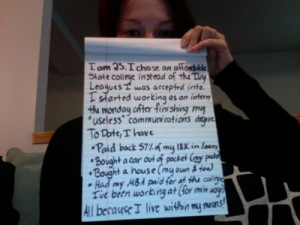 I am 25. I chose an affordable
State college instead of the Ivy
Leagues I was accepted into.
I started working as an intern
the monday after finishing my
"useless" communications degree.
To Date, I have
• Paid back 57% of my 18K in loans
• Bought a car out of pocket (my pocket)
• Bought a house (my own & too)
• Had my MBA paid for at the college
I've been working at (for min wage)
All because I live within my means!